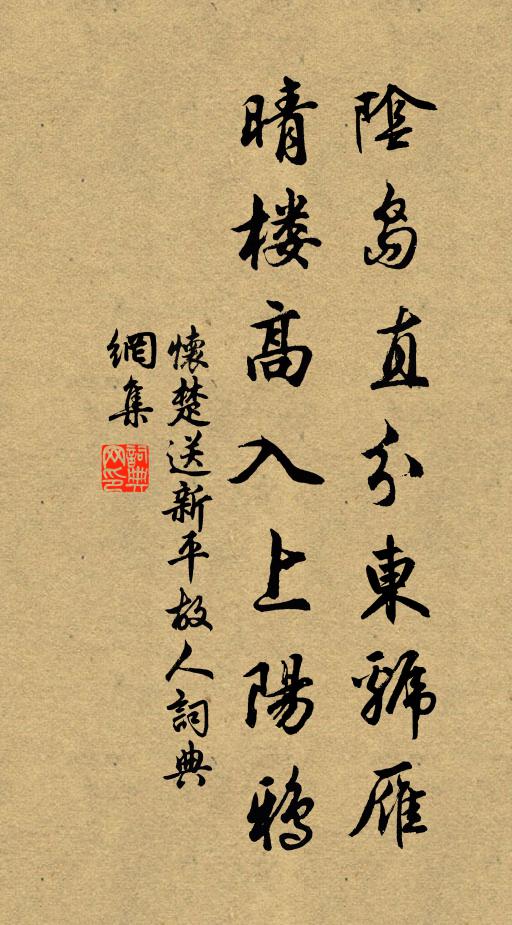 陰島直分東虢雁
晴楼高入上陽鴉
懷楚送新平故人詞典
網集
詞典网印